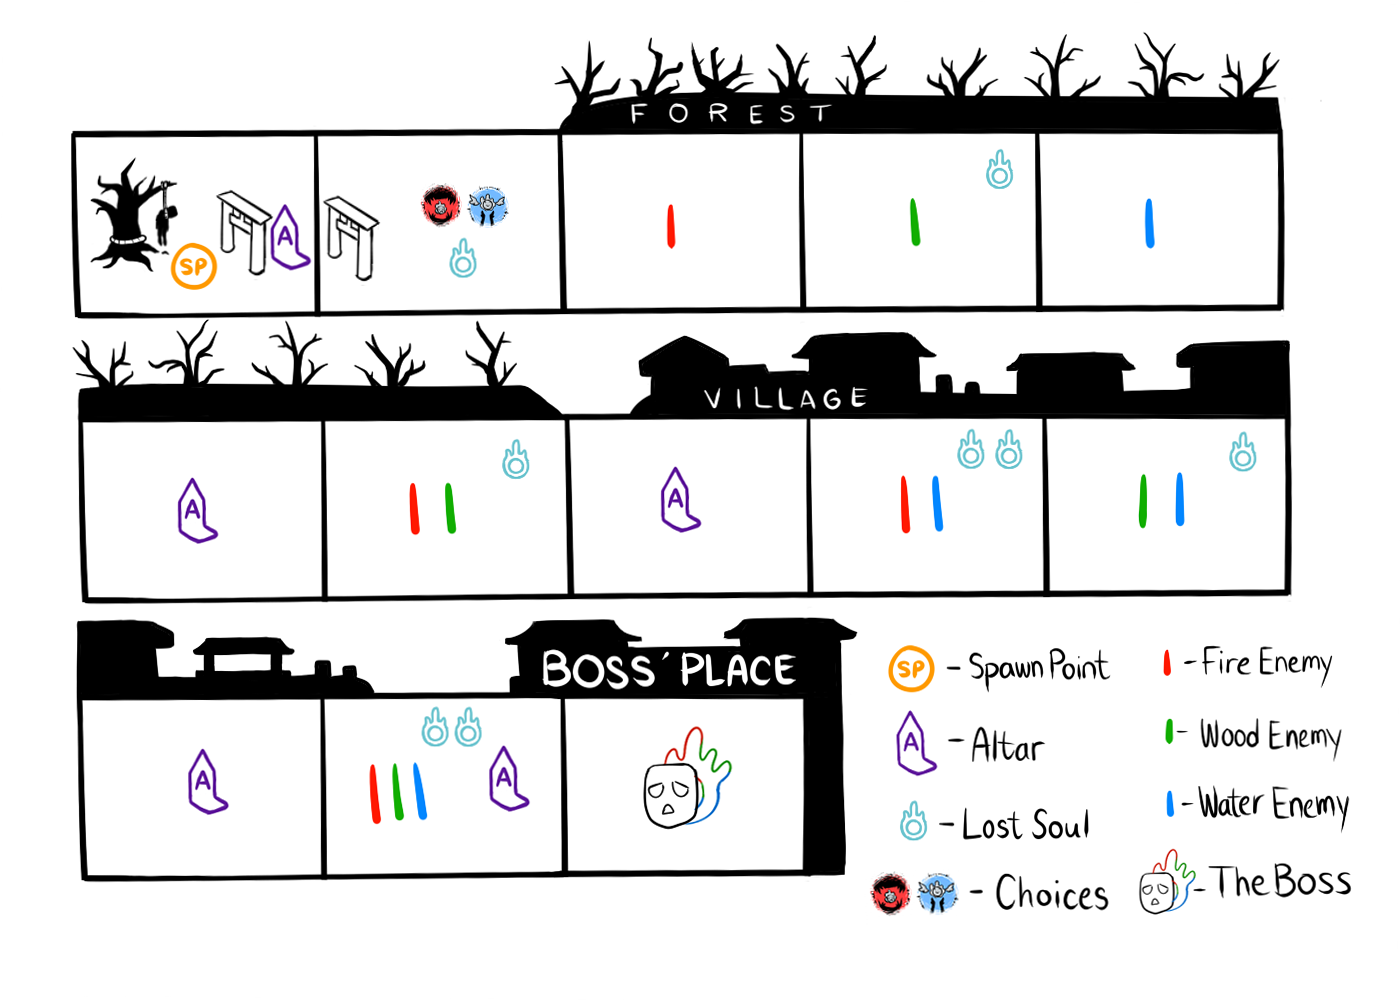 FOREST
SP
A
VILLAGE
A
A
BOSS' PLACE
A
A
SP - Spawn Point
A - Altar
- Lost Soul
- Choices
- Fire Enemy
- Wood Enemy
- Water Enemy
- The Boss